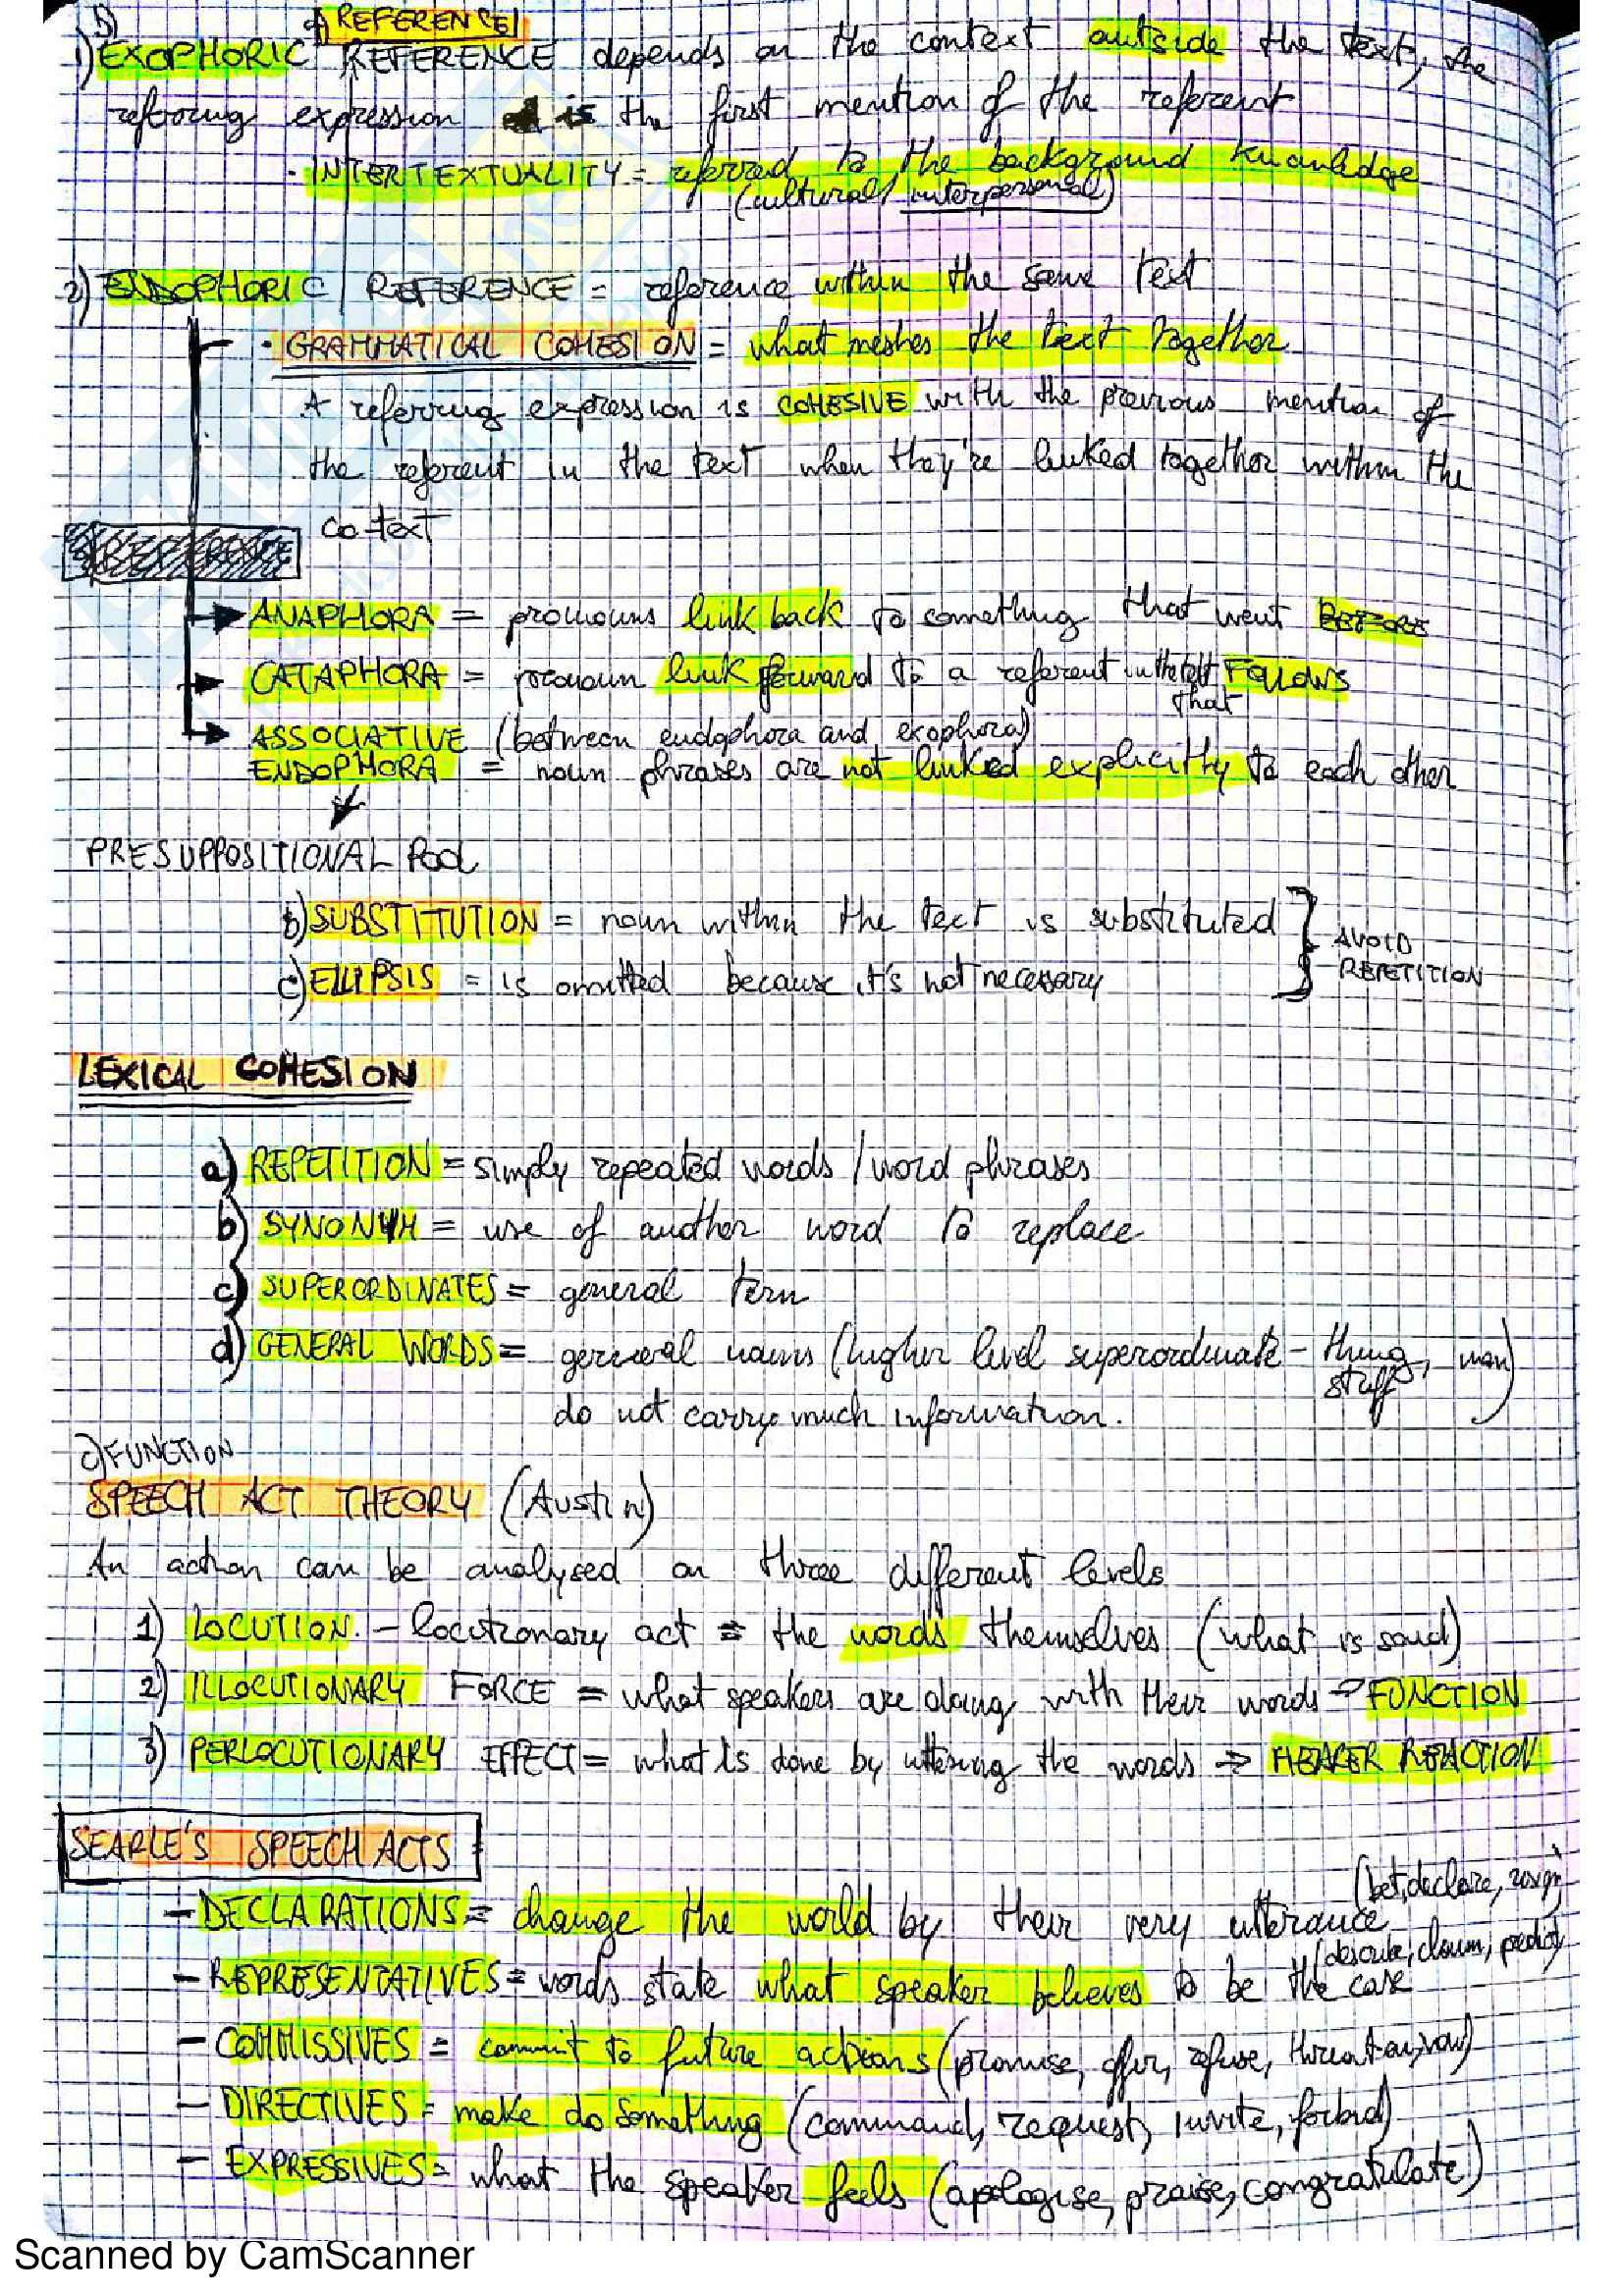 REFERENCE
1) EXOPHORIC REFERENCE depends on the context outside the text, the
referring expression is the first mention of the referent
· INTERTEXTUALITY = referred to the background knowledge
(cultural/interpersonal)
2) ENDOPHORIC REFERENCE = reference within the same text
· GRAMMATICAL COHESION = what meshes the text together
A referring expression is COHESIVE with the previous mention of
the referent in the text when they're linked together within the
co-text
ANAPHORA = pronouns link back to something that went BEFORE
CATAPHORA = pronoun link forward to a referent in the text FOLLOWS
that
ASSOCIATIVE (between endophora and exophora)
ENDOPHORA = noun phrases are not linked explicitly to each other
PRESUPPOSITIONAL POOL
B) SUBSTITUTION = noun within the text is substituted
AVOID
REPETITION
C) ELLIPSIS = is omitted because it's not necessary
LEXICAL COHESION
a) REPETITION = simply repeated words / word phrases
b) SYNONYM = use of another word to replace
c) SUPERORDINATES = general term
d) GENERAL WORDS = general nouns (higher level superordinate - thing, man)
stuff
do not carry much information.
c) FUNCTION
SPEECH ACT THEORY (Austin)
An action can be analysed on three different levels
1) LOCUTION. - locutionary act = the words themselves (what is said)
2) ILLOCUTIONARY FORCE = what speakers are doing with their words → FUNCTION
3) PERLOCUTIONARY EFFECT = what is done by uttering the words → HEARER REACTION
SEARLE'S SPEECH ACTS
(bet, declare, resign)
- DECLARATIONS = change the world by their very utterance
(describe, claim, predict)
- REPRESENTATIVES = words state what speaker believes to be the case
- COMMISSIVES = commit to future actions (promise, offer, refuse, threaten, vow)
- DIRECTIVES = make do something (command, request, invite, forbid)
- EXPRESSIVES = what the speaker feels (apologise, praise, congratulate)
Scanned by CamScanner